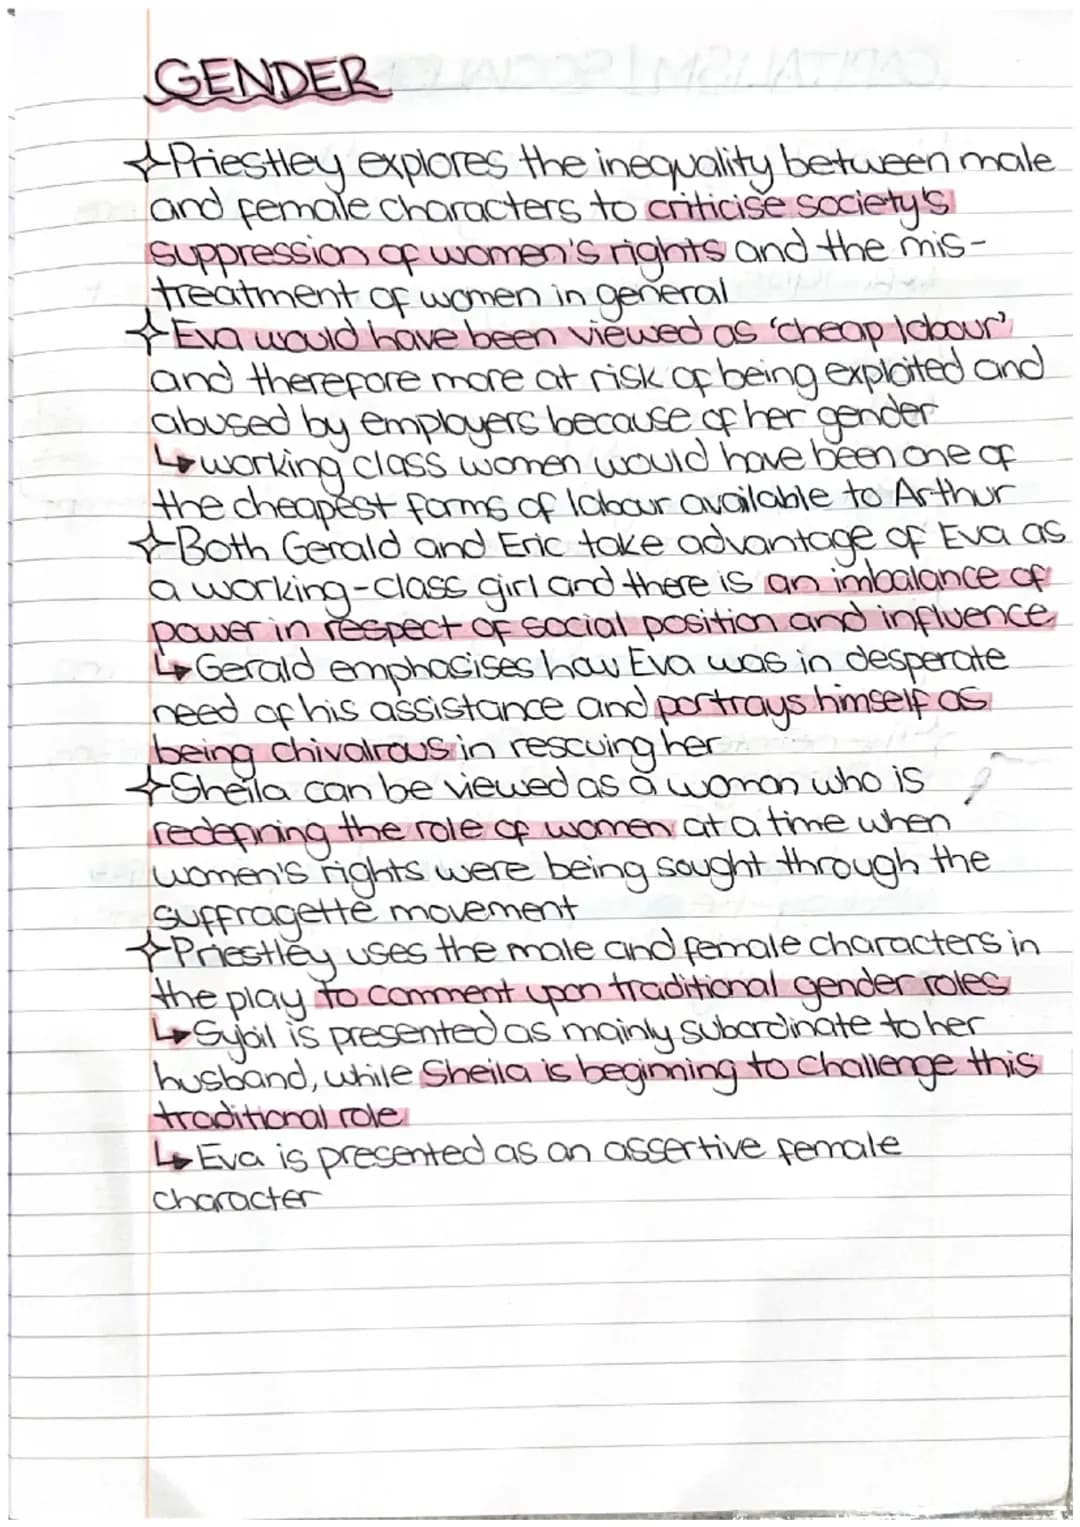 GENDER
✧Priestley explores the inequality between male
and female characters to criticise society's
suppression of women's rights and the mis-
treatment of women in general
✧Eva would have been viewed as 'cheap labour'
and therefore more at risk of being exploited and
abused by employers because of her gender
↳working class women would have been one of
the cheapest forms of labour available to Arthur
✧Both Gerald and Eric take advantage of Eva as
a working-class girl and there is an imbalance of
power in respect of social position and influence
↳Gerald emphasises how Eva was in desperate
need of his assistance and portrays himself as
being chivalrous in rescuing her
✧Sheila can be viewed as a woman who is
redefining the role of women at a time when
women's rights were being sought through the
suffragette movement
✧Priestley uses the male and female characters in
the play to comment upon traditional gender roles
↳Sybil is presented as mainly subordinate to her
husband, while Sheila is beginning to challenge this
traditional role
↳Eva is presented as an assertive female
character